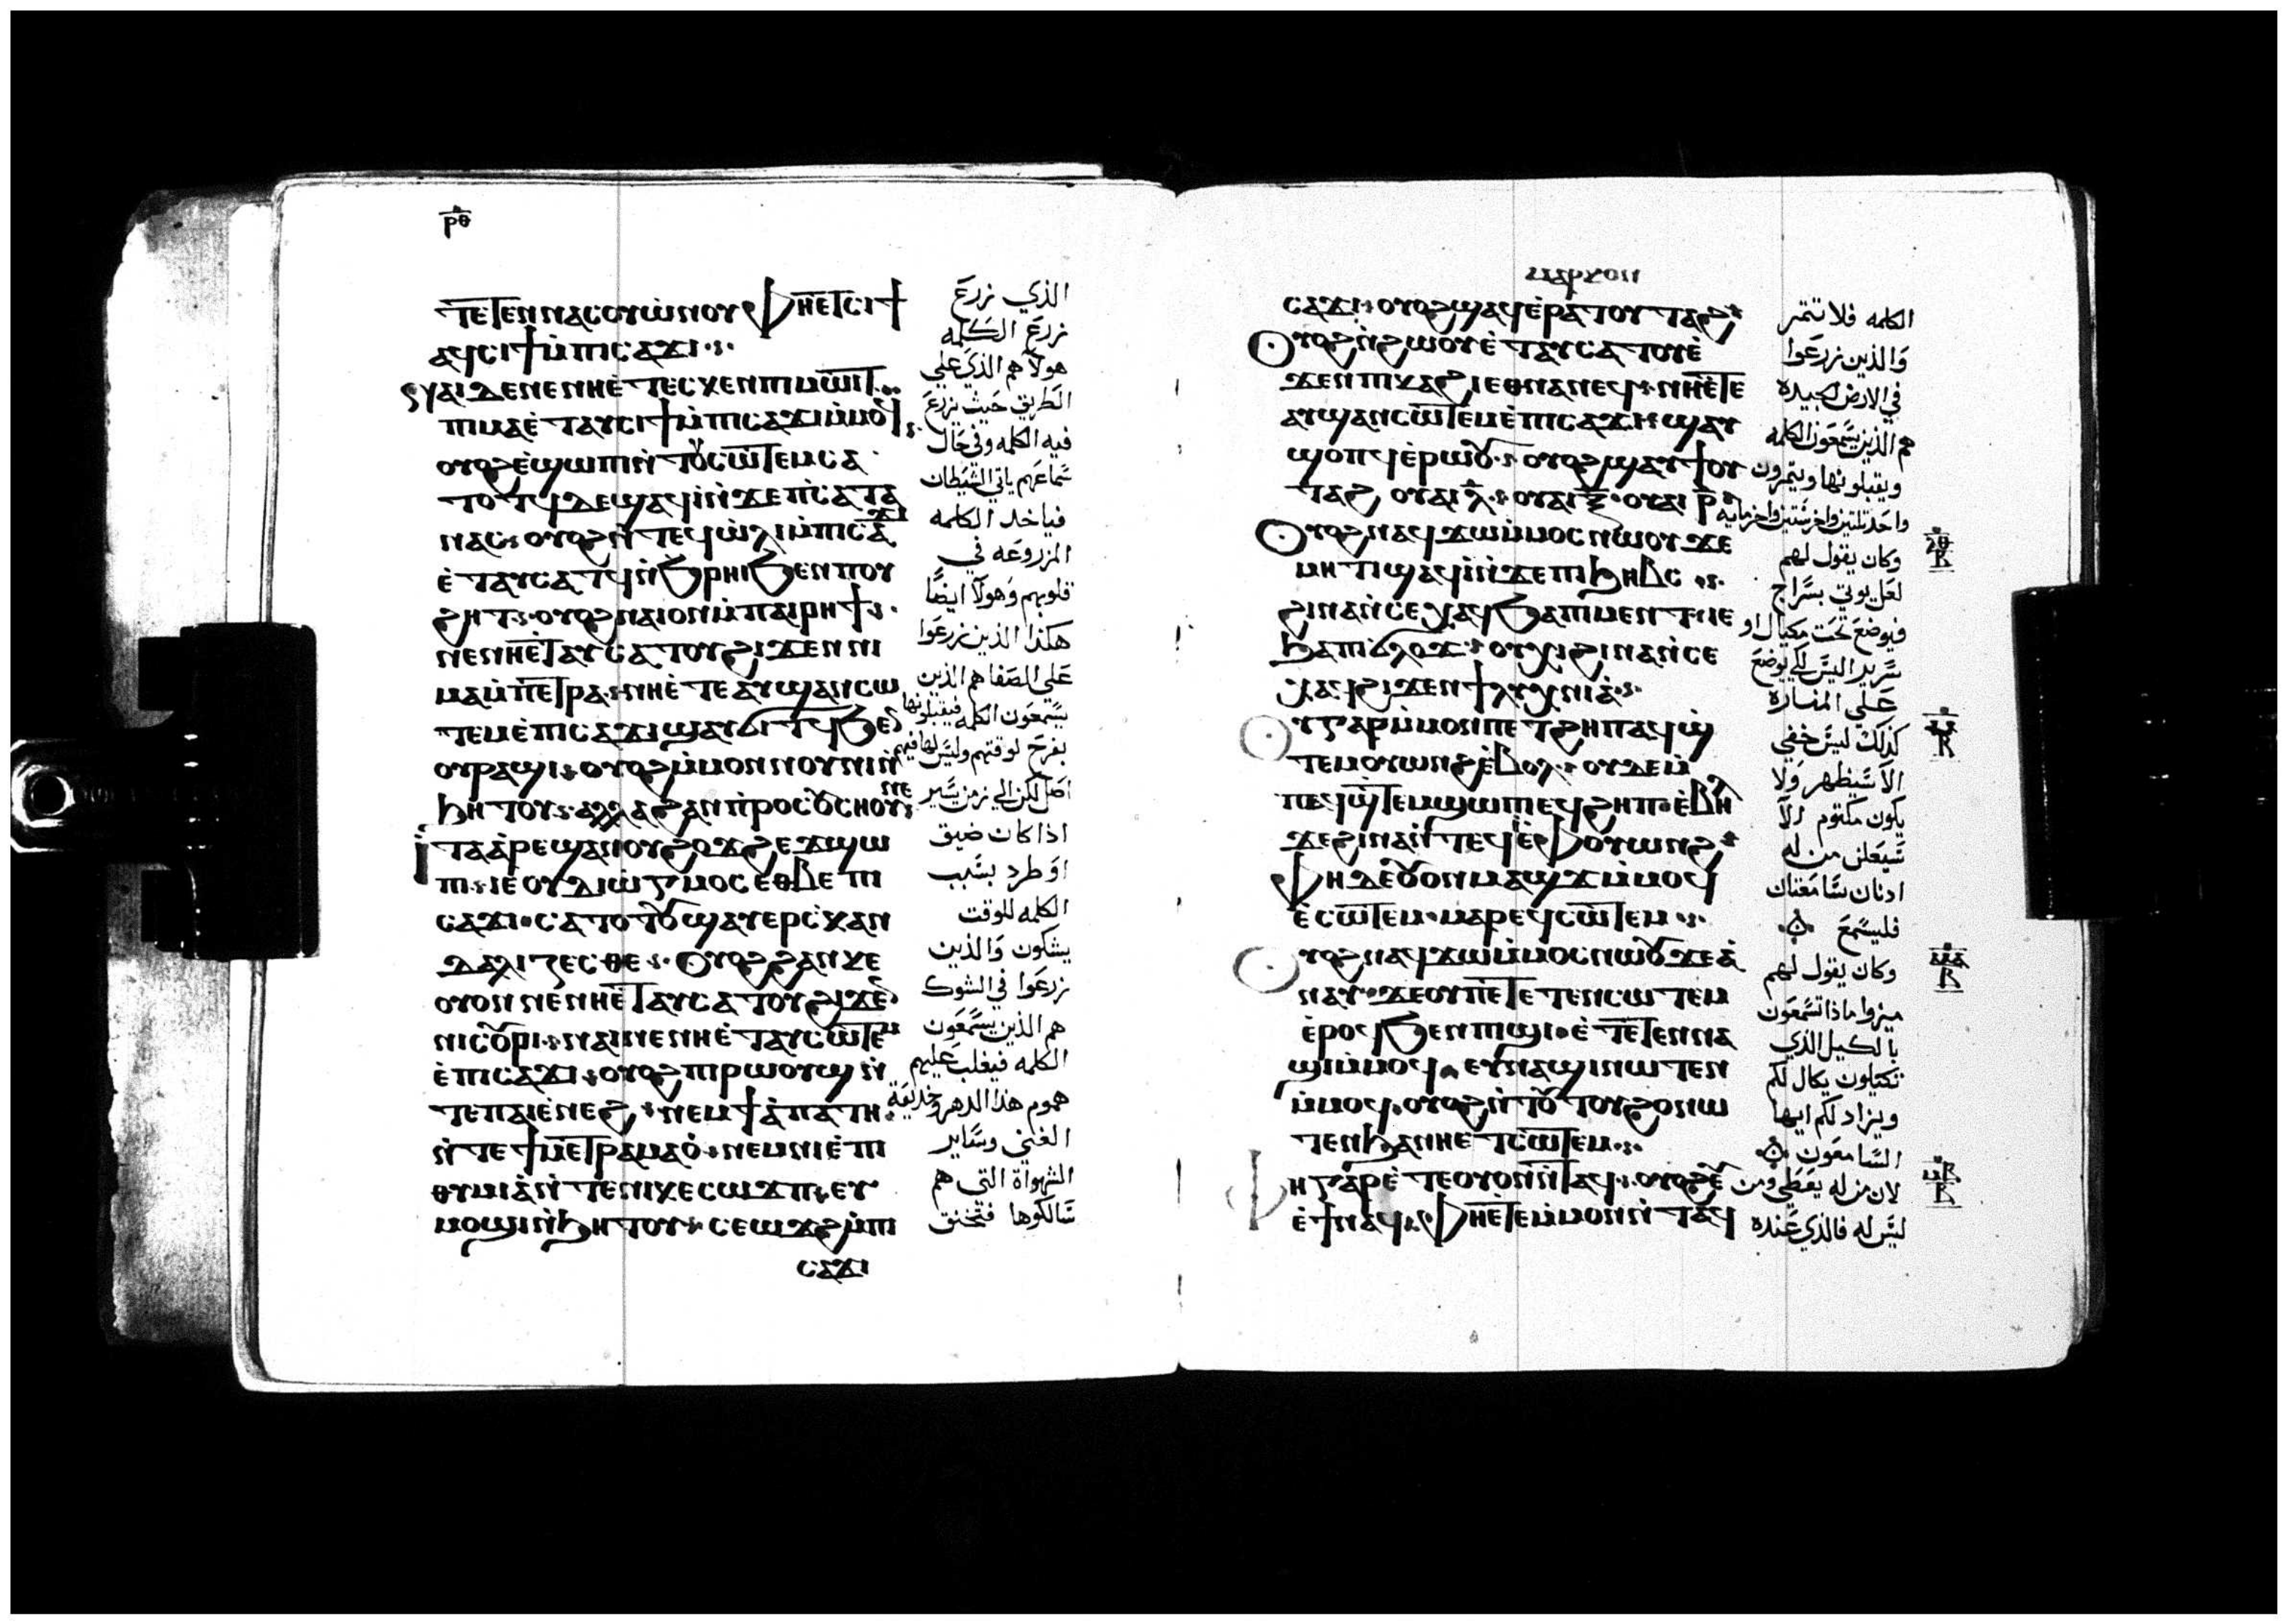 ⲣⲑ
ⲧⲉⲧⲉⲛⲛⲁⲥⲟⲩⲱⲛⲟⲩ ⲫⲏⲉⲧⲥⲓϯ
ⲁϥⲥⲓϯⲙ̇ⲡⲓⲥⲁϫⲓ
ⲛⲁⲓⲇⲉⲛⲉⲛⲏⲉ̇ⲧⲉⲥⲕⲉⲛⲡⲓⲙⲱⲓⲧ
ⲡⲓⲙⲁⲉ̇ⲧⲁⲩⲥⲓϯⲙ̇ⲡⲓⲥⲁϫⲓⲙ̇ⲙⲟϥ
ⲟⲩⲟϩⲉ̇ϣⲱⲡⲛ̇ⲧⲟⲩⲥⲱⲧⲉⲙⲥⲁ
ⲧⲟⲧϥⲇⲉϣⲁϥⲓ̇ⲛ̇ϫⲉⲡⲥ̇ⲁⲧⲁ
ⲛⲁⲥ ⲟⲩⲟϩⲛ̇ⲧⲉϥⲱ̇ⲗⲓⲙ̇ⲡⲓⲥⲁϫⲓ
ⲉ̇ⲧⲁⲩⲥⲁⲧϥⲛ̇ϧⲣⲏⲓϧⲉⲛⲡⲟⲩ
ϩⲏⲧ ⲟⲩⲟϩⲛⲁⲓⲟⲛⲙ̇ⲡⲁⲓⲣⲏϯ
ⲛⲉⲛⲏⲉ̇ⲧⲁⲩⲥⲁⲧⲟⲩϩⲓϫⲉⲛⲛⲓ
ⲙⲁⲙ̇ⲡⲉⲧⲣⲁ ⲛⲏⲉ̇ⲧⲉⲁⲩϣⲁⲛⲥⲱ
ⲧⲉⲙⲉ̇ⲡⲓⲥⲁϫⲓϣⲁⲩϭⲓⲧϥϧⲉⲛ
ⲟⲩⲣⲁϣⲓ ⲟⲩⲟϩⲙ̇ⲙⲟⲛⲛⲟⲩⲛⲓ ⲛ̇
ϧⲏⲧⲟⲩ ⲁⲗⲗⲁϩⲁⲛⲡ̇ⲣⲟⲥⲟⲩⲥⲛⲟⲩ ⲛⲉ
ⲓ̇ⲧⲁⲁ̇ⲣⲉϣⲁⲛⲟⲩϩⲟϫϩⲉϫϣⲱ
ⲡⲓ ⲓⲉⲟⲩⲇⲓⲱ̇ⲅⲙⲟⲥⲉⲑⲃⲉⲡⲓ
ⲥⲁϫⲓ ⲥⲁⲧⲟⲧⲟⲩϣⲁⲩⲉⲣⲥ̇ⲕⲁⲛ
ⲇⲁⲗⲓⲍⲉⲥⲑⲉ ⲟⲩⲟϩϩⲁⲛⲕⲉ
ⲟⲩⲟⲛⲛⲉⲛⲏⲉ̇ⲧⲁⲩⲥⲁⲧⲟⲩϩⲓϫⲉⲛ
ⲛⲓⲥⲟⲩⲣⲓ ⲛⲁⲓⲛⲉⲛⲏⲉ̇ⲧⲁⲩⲥⲱⲧⲉⲙ
ⲉ̇ⲡⲓⲥⲁϫⲓ ⲟⲩⲟϩⲡⲓⲣⲱⲟⲩϣ ⲛ̇
ⲧⲉⲡⲁⲓⲉ̇ⲛⲉϩ ⲛⲉⲙϯⲁ̇ⲡⲁⲧⲏ
ⲛ̇ⲧⲉϯⲙⲉⲧⲣⲁⲙⲁⲟ̇ ⲛⲉⲙⲛⲓⲉ̇ⲡⲓ
ⲑⲩⲙⲓⲁ̇ⲛ̇ⲧⲉⲛⲓⲕⲉⲥⲱϫⲡ ⲉⲩ
ⲙⲟϣⲓⲛ̇ϧⲏⲧⲟⲩ ⲥⲉⲱϫϩⲙ̇ⲡⲓ
ⲥⲁϫⲓ
الذي زرع
زرع الكلمه
هولآ هم الذي علي
الطريق حيث زرع
فيه الكلمه وفي حال
سماعهم ياتي الشيطان
فياخد الكلمه
المزروعه في
قلوبهم وهولآ ايضًا
هكذا الذين زرعوا
علي الصفا هم الذين
يسمعون الكلمه فيقبلونها
بفرح لوقتهم وليس لها فيهم
اصل لكن الي زمن يسير
اذا كان ضيق
او طرد بسبب
الكلمه للوقت
يشكون والذين
زرعوا في الشوك
هم الذين يسمعون
الكلمه فيغلب عليهم
هموم هذا الدهر وخديعة
الغني وساير
الشهواة التي هم
سالكوها فتخنق
ⲙⲁⲣⲕⲟⲛ
ⲥⲁϫⲓ ⲟⲩⲟϩϣⲁϥⲉ̇ⲣⲁⲧⲟⲩⲧⲁϩ
ⲟⲩⲟϩⲛ̇ϩⲱⲟⲩⲉ̇ⲧⲁⲩⲥⲁⲧⲟⲩⲉ̇
ϫⲉⲛⲡⲓⲕⲁϩⲓⲉⲑⲛⲁⲛⲉϥ ⲛⲏⲉ̇ⲧⲉ
ⲁⲩϣⲁⲛⲥⲱⲧⲉⲙⲉ̇ⲡⲓⲥⲁϫⲓ ϣⲁⲩ
ϣⲟⲡϥⲉ̇ⲣⲱⲟⲩ ⲟⲩⲟϩϣⲁⲩϯⲟⲩ
ⲧⲁϩ ⲟⲩⲁⲓ ⲗ̅ ⲟⲩⲁⲓ ⲝ̅ ⲟⲩⲁⲓ ⲣ̅
ⲟⲩⲟϩⲛⲁϥϫⲱⲙ̇ⲙⲟⲥⲛⲱⲟⲩϫⲉ
ⲙⲏⲧⲓϣⲁϥⲓ̇ⲛ̇ϫⲉⲡⲓϧⲏⲃⲥ
ϩⲓⲛⲁⲛ̇ⲥⲉⲭⲁϥϧⲁⲡⲓⲙⲉⲛⲧ ⲓⲉ
ϧⲁⲡⲓϭⲗⲟϫ ⲟⲩⲭⲓϩⲓⲛⲁⲛ̇ⲥⲉ
ⲭⲁϥϩⲓϫⲉⲛϯⲗⲩⲭⲛⲓⲁ̇
ⲟⲩⲅⲁⲣⲙ̇ⲙⲟⲛⲡⲉⲧϩⲏⲡⲁϥϣ̇
ⲧⲉⲙⲟⲩⲱⲛϩⲉ̇ⲃⲟⲗ ⲟⲩⲇⲉⲙ̇
ⲡⲉϥϣ̇ⲧⲉⲙϣⲱⲡⲉϥϩⲏⲡ ⲉ̇ⲃⲏⲗ
ϫⲉϩⲓⲛⲁⲛ̇ⲧⲉϥⲉ̇ⲣⲫⲟⲩⲱⲛϩ
ⲫⲏⲇⲉⲟⲩⲟⲛⲙⲁϣϫⲙ̇ⲙⲟϥ
ⲉ̇ⲥⲱⲧⲉⲙ ⲙⲁⲣⲉϥⲥⲱⲧⲉⲙ
ⲟⲩⲟϩⲛⲁϥϫⲱⲙ̇ⲙⲟⲥⲛⲱⲟⲩϫⲉⲁ̇
ⲛⲁⲩ ϫⲉⲟⲩⲡⲉⲧⲉⲧⲉⲛⲥⲱⲧⲉⲙ
ⲉ̇ⲣⲟϥ ϧⲉⲛⲡⲓϣⲓ ⲉ̇ⲧⲉⲧⲉⲛⲛⲁ
ϣⲓⲙ̇ⲙⲟϥ ⲉⲩⲛⲁϣⲓⲛⲱⲧⲉⲛ
ⲙ̇ⲙⲟϥ ⲟⲩⲟϩⲛ̇ⲧⲟⲩⲧⲟⲩϩⲟⲛⲱ
ⲧⲉⲛϧⲁⲛⲏⲉⲧⲥⲱⲧⲉⲙ
ⲫⲏⲅⲁⲣⲉ̇ⲧⲉⲟⲩⲟⲛⲛ̇ⲧⲁϥ ⲟⲩⲟϩⲥⲉ
ⲉ̇ϯⲛⲁϥ ⲫⲏⲉ̇ⲧⲉⲙ̇ⲙⲟⲛⲛ̇ⲧⲁϥ
الكلمه فلا تثمر
والذين زرعوا
في الارض الجيده
هم الذين يسمعون الكلمه
ويقبلونها ويثمرون
واحد ثلثين واخر ستين واخر مايه
وكان يقول لهم
لعل يوتي بسراج
فيوضع تحت مكيال او
سرير اليس لكي يوضع
علي المناره
كذلك ليس خفي
الا سيظهر ولا
يكون مكتوم الآ
سيعلن من له
ادنان سامعتان
فليسمع
وكان يقول لهم
ميزوا ماذا تسمعون
بالكيل الذي
تكتلون يكال لكم
ويزاد لكم ايها
السامعون
لان من له يعطي ومن
ليس له فالذي عنده
ⲗⲑ
ⲃ
ⲙ
ⲃ
ⲙⲁ
ⲃ
ⲙⲃ
ⲃ